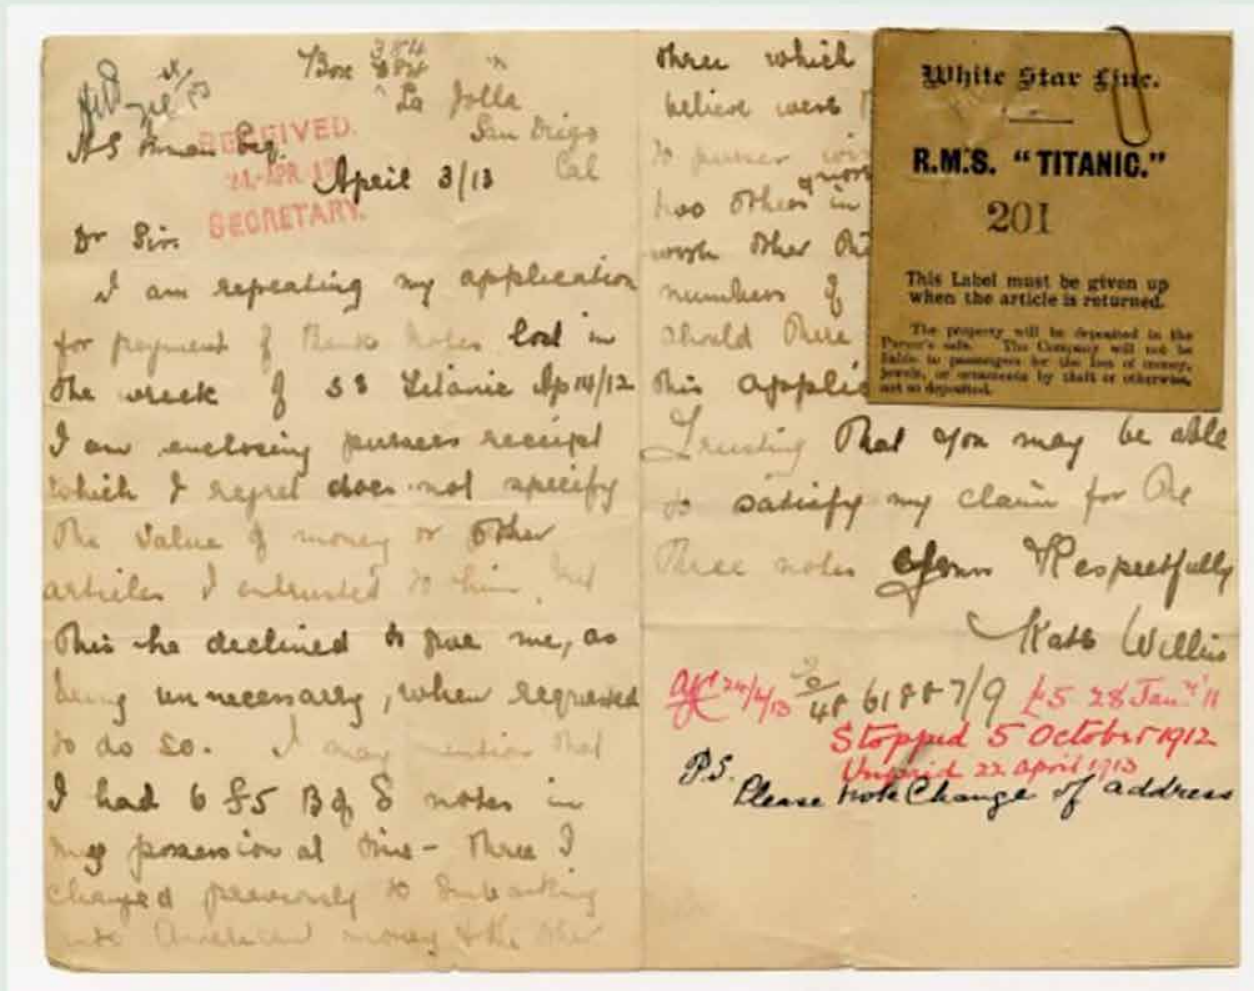 Box 384
La Jolla
San Diego
Cal
RECEIVED.
24 APR 13
SECRETARY.
Esq.
April 3/13
Dr Sir.
I am repeating my application
for payment of Bank Notes lost in
the wreck of SS Titanic Ap 14/12
I am enclosing pursers receipt
which I regret does not specify
the value of money or other
articles I entrusted to him, but
this he declined to give me, as
being unnecessary, when requested
to do so. I may mention that
I had 6 £5 B of E notes in
my possession at time - three I
changed previously to embarking
into American money & the other
three which
believe were
to purser
two others in
with other
numbers of
should there
this applic
Trusting that you may be able
to satisfy my claim for the
three notes Yours Respectfully
Kate Willis
24/4/13 48 61887/9 £5 28 Jan 11
Stopped 5 October 1912
Unpaid 22 April 1913
P.S. Please note Change of address
White Star Line.
R.M.S. "TITANIC."
201
This Label must be given up
when the article is returned.
The property will be deposited in the
Purser's safe. The Company will not be
liable to passengers for the loss of money,
jewels, or ornaments by theft or otherwise,
not so deposited.